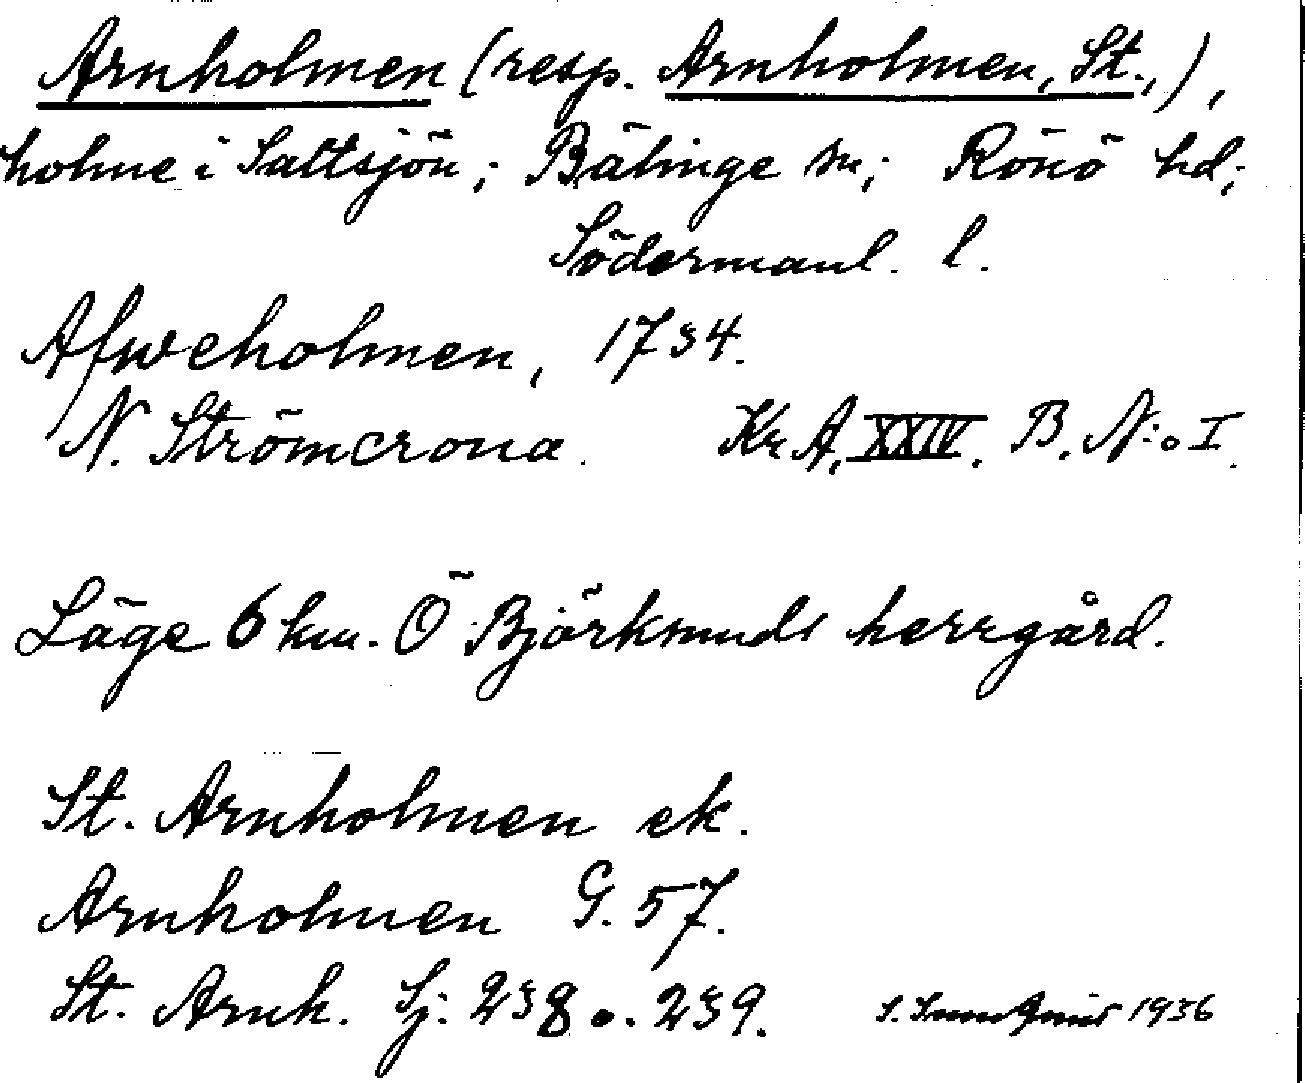 Arnholmen (resp. Arnholmen, St.,),
holme i Saltsjön; Bälinge sn; Rönö hd;
Södermanl. l.
Afweholmen, 1734.
N. Strömcrona. Kr. A. XXIV. B. N:o I.
Läge 6 km. Ö Björksunds herrgård.
St. Arnholmen ek.
Arnholmen G. 57.
St. Arnh. Sj: 238 o. 239.
S. 1936